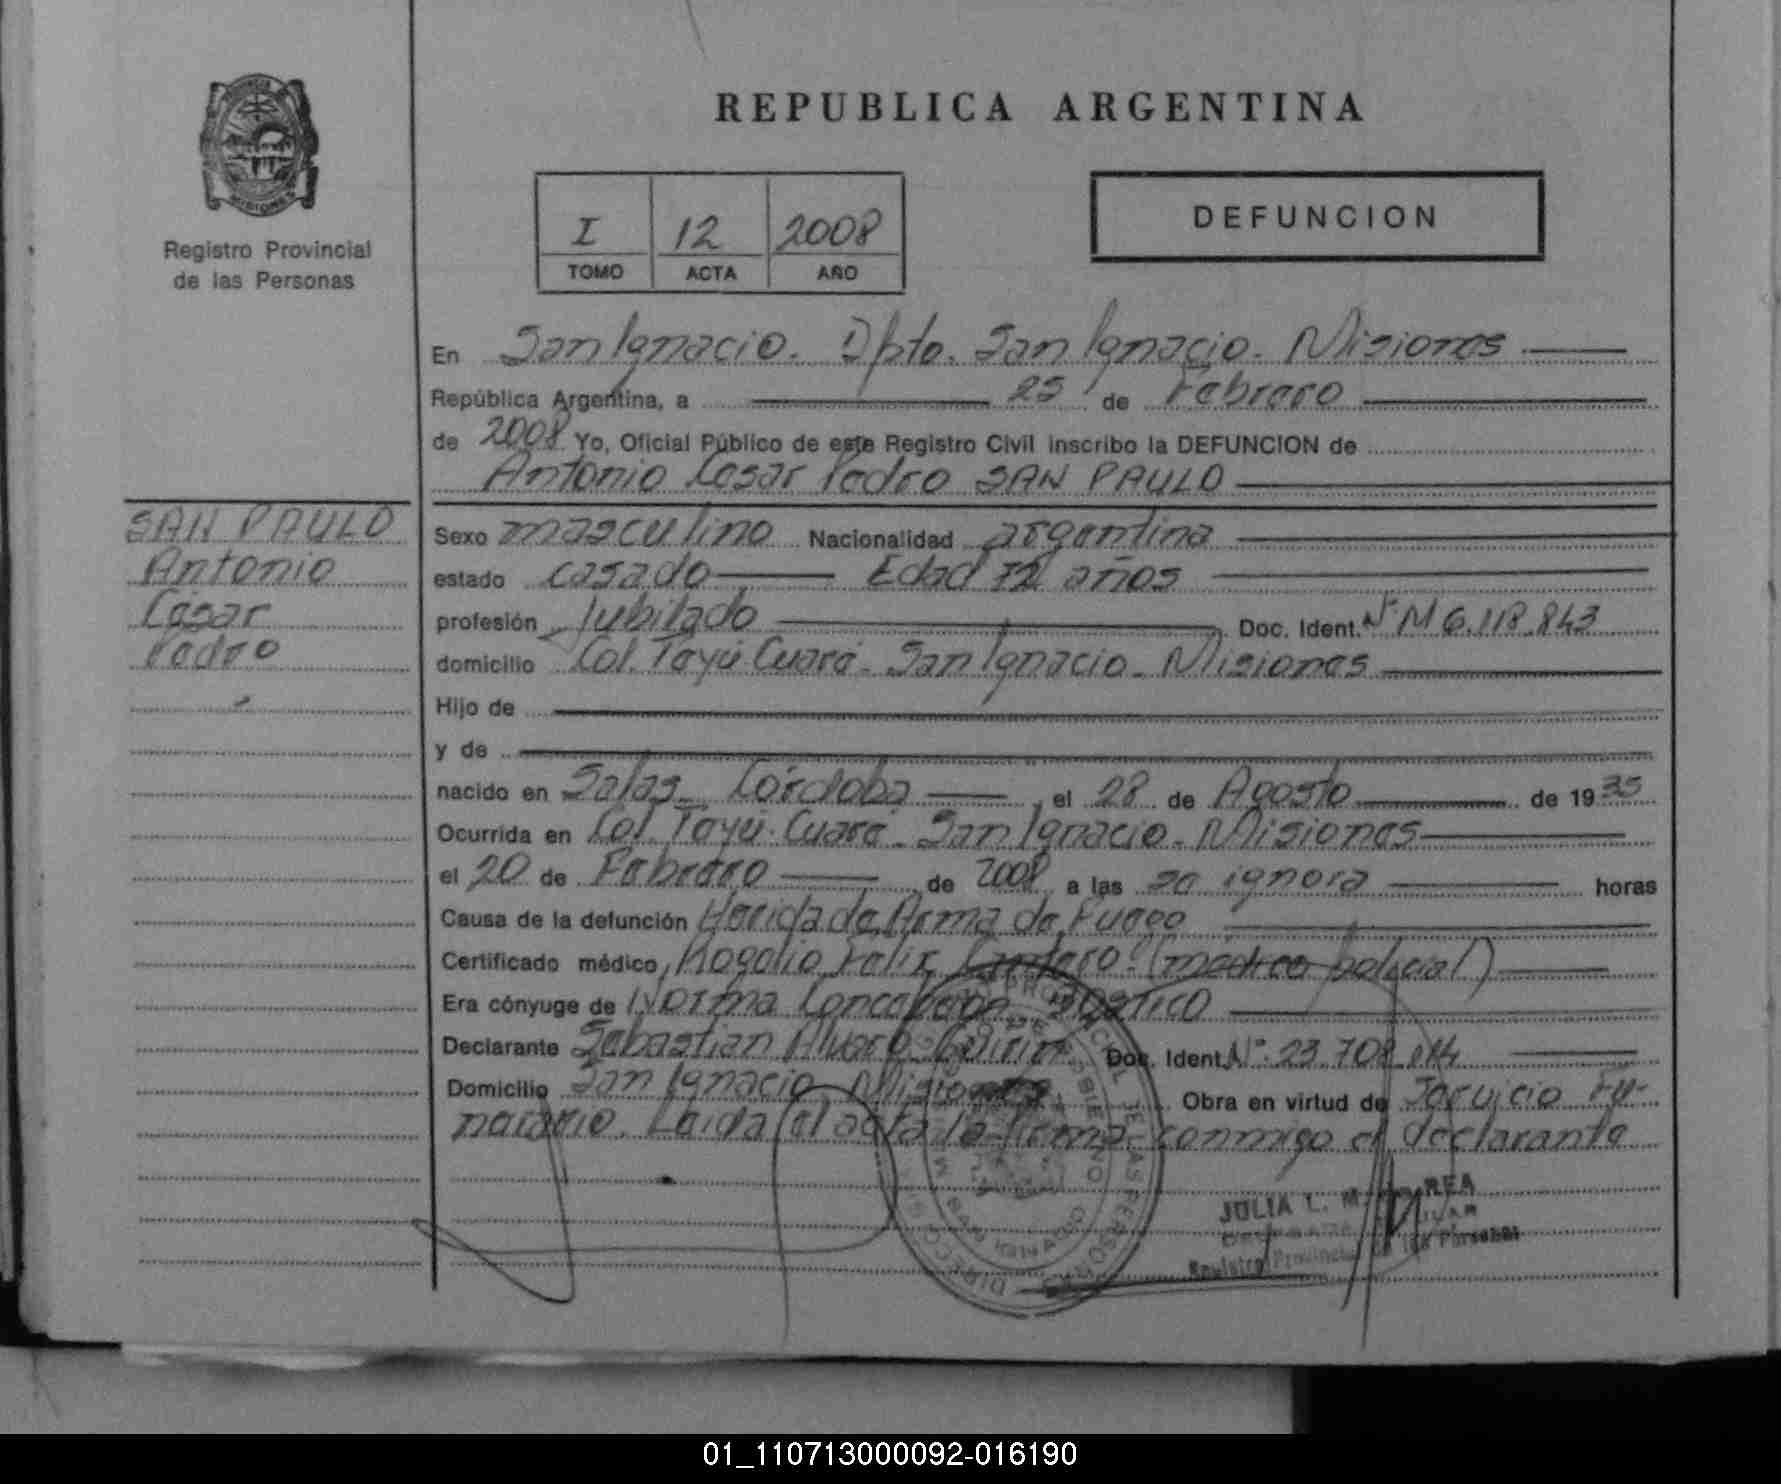 REPUBLICA ARGENTINA
Registro Provincial
de las Personas
I 12 2008
TOMO ACTA AÑO
DEFUNCION
En San Ignacio. Dpto. San Ignacio. Misiones
República Argentina, a 25 de Febrero
de 2008 Yo, Oficial Público de este Registro Civil inscribo la DEFUNCION de
Antonio Cesar Pedro SAN PAULO
SAN PAULO
Antonio
Cesar
Pedro
Sexo masculino Nacionalidad argentina
estado casado Edad 72 años
profesión Jubilado Doc. Ident. Nº M 6.118.843
domicilio Col. Teyú Cuaré - San Ignacio - Misiones
Hijo de
y de
nacido en Salas - Córdoba , el 28 de Agosto de 1935
Ocurrida en Col. Teyú Cuaré - San Ignacio - Misiones
el 20 de Febrero de 2008 a las se ignora horas
Causa de la defunción Herida de Arma de Fuego
Certificado médico, Rogelio Felix (médico policial)
Era cónyuge de Norma
Declarante Sebastian Alvaro Doc. Ident. Nº 23.708
Domicilio San Ignacio Misiones Obra en virtud de Servicio Fu-
nerario. Leida el acta la firma conmigo el declarante
JULIA L. M.
Registro Provincial de las Personas
01_110713000092-016190